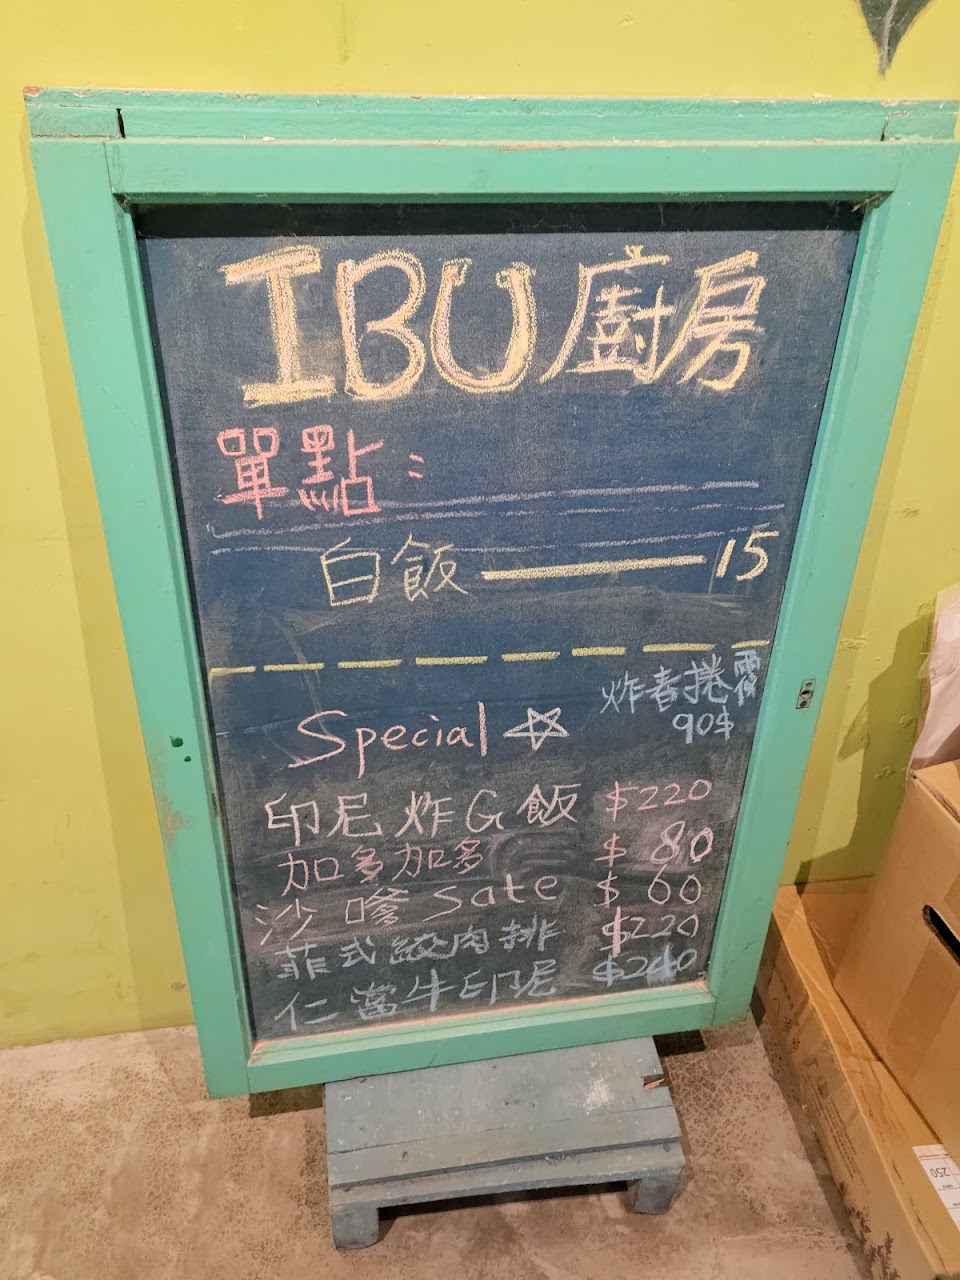 IBU廚房
單點:
白飯 —— 15
炸春捲
90$
Special ☆
印尼炸G飯 $220
加多加多 $80
沙嗲 sate $60
菲式絞肉排 $220
仁當牛印尼 $240
250